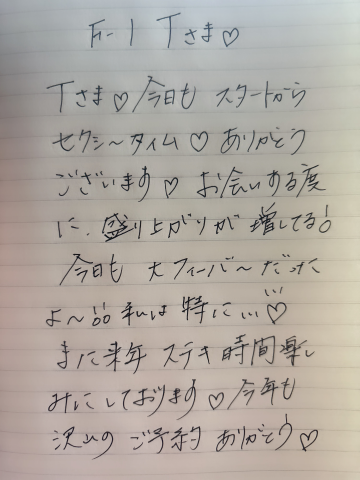 F-1 Tさま♡
Tさま♡今日も スタートから
セクシ〜タイム♡ ありがとう
ございます♡ お会いする度
に、盛り上がりが 増してる!
今日も 大フィーバ〜だった
よ〜!! 私は 特に…♡
また来年 ステキ時間楽し
みにしております♡今年も
沢山の ご予約 ありがとう♡